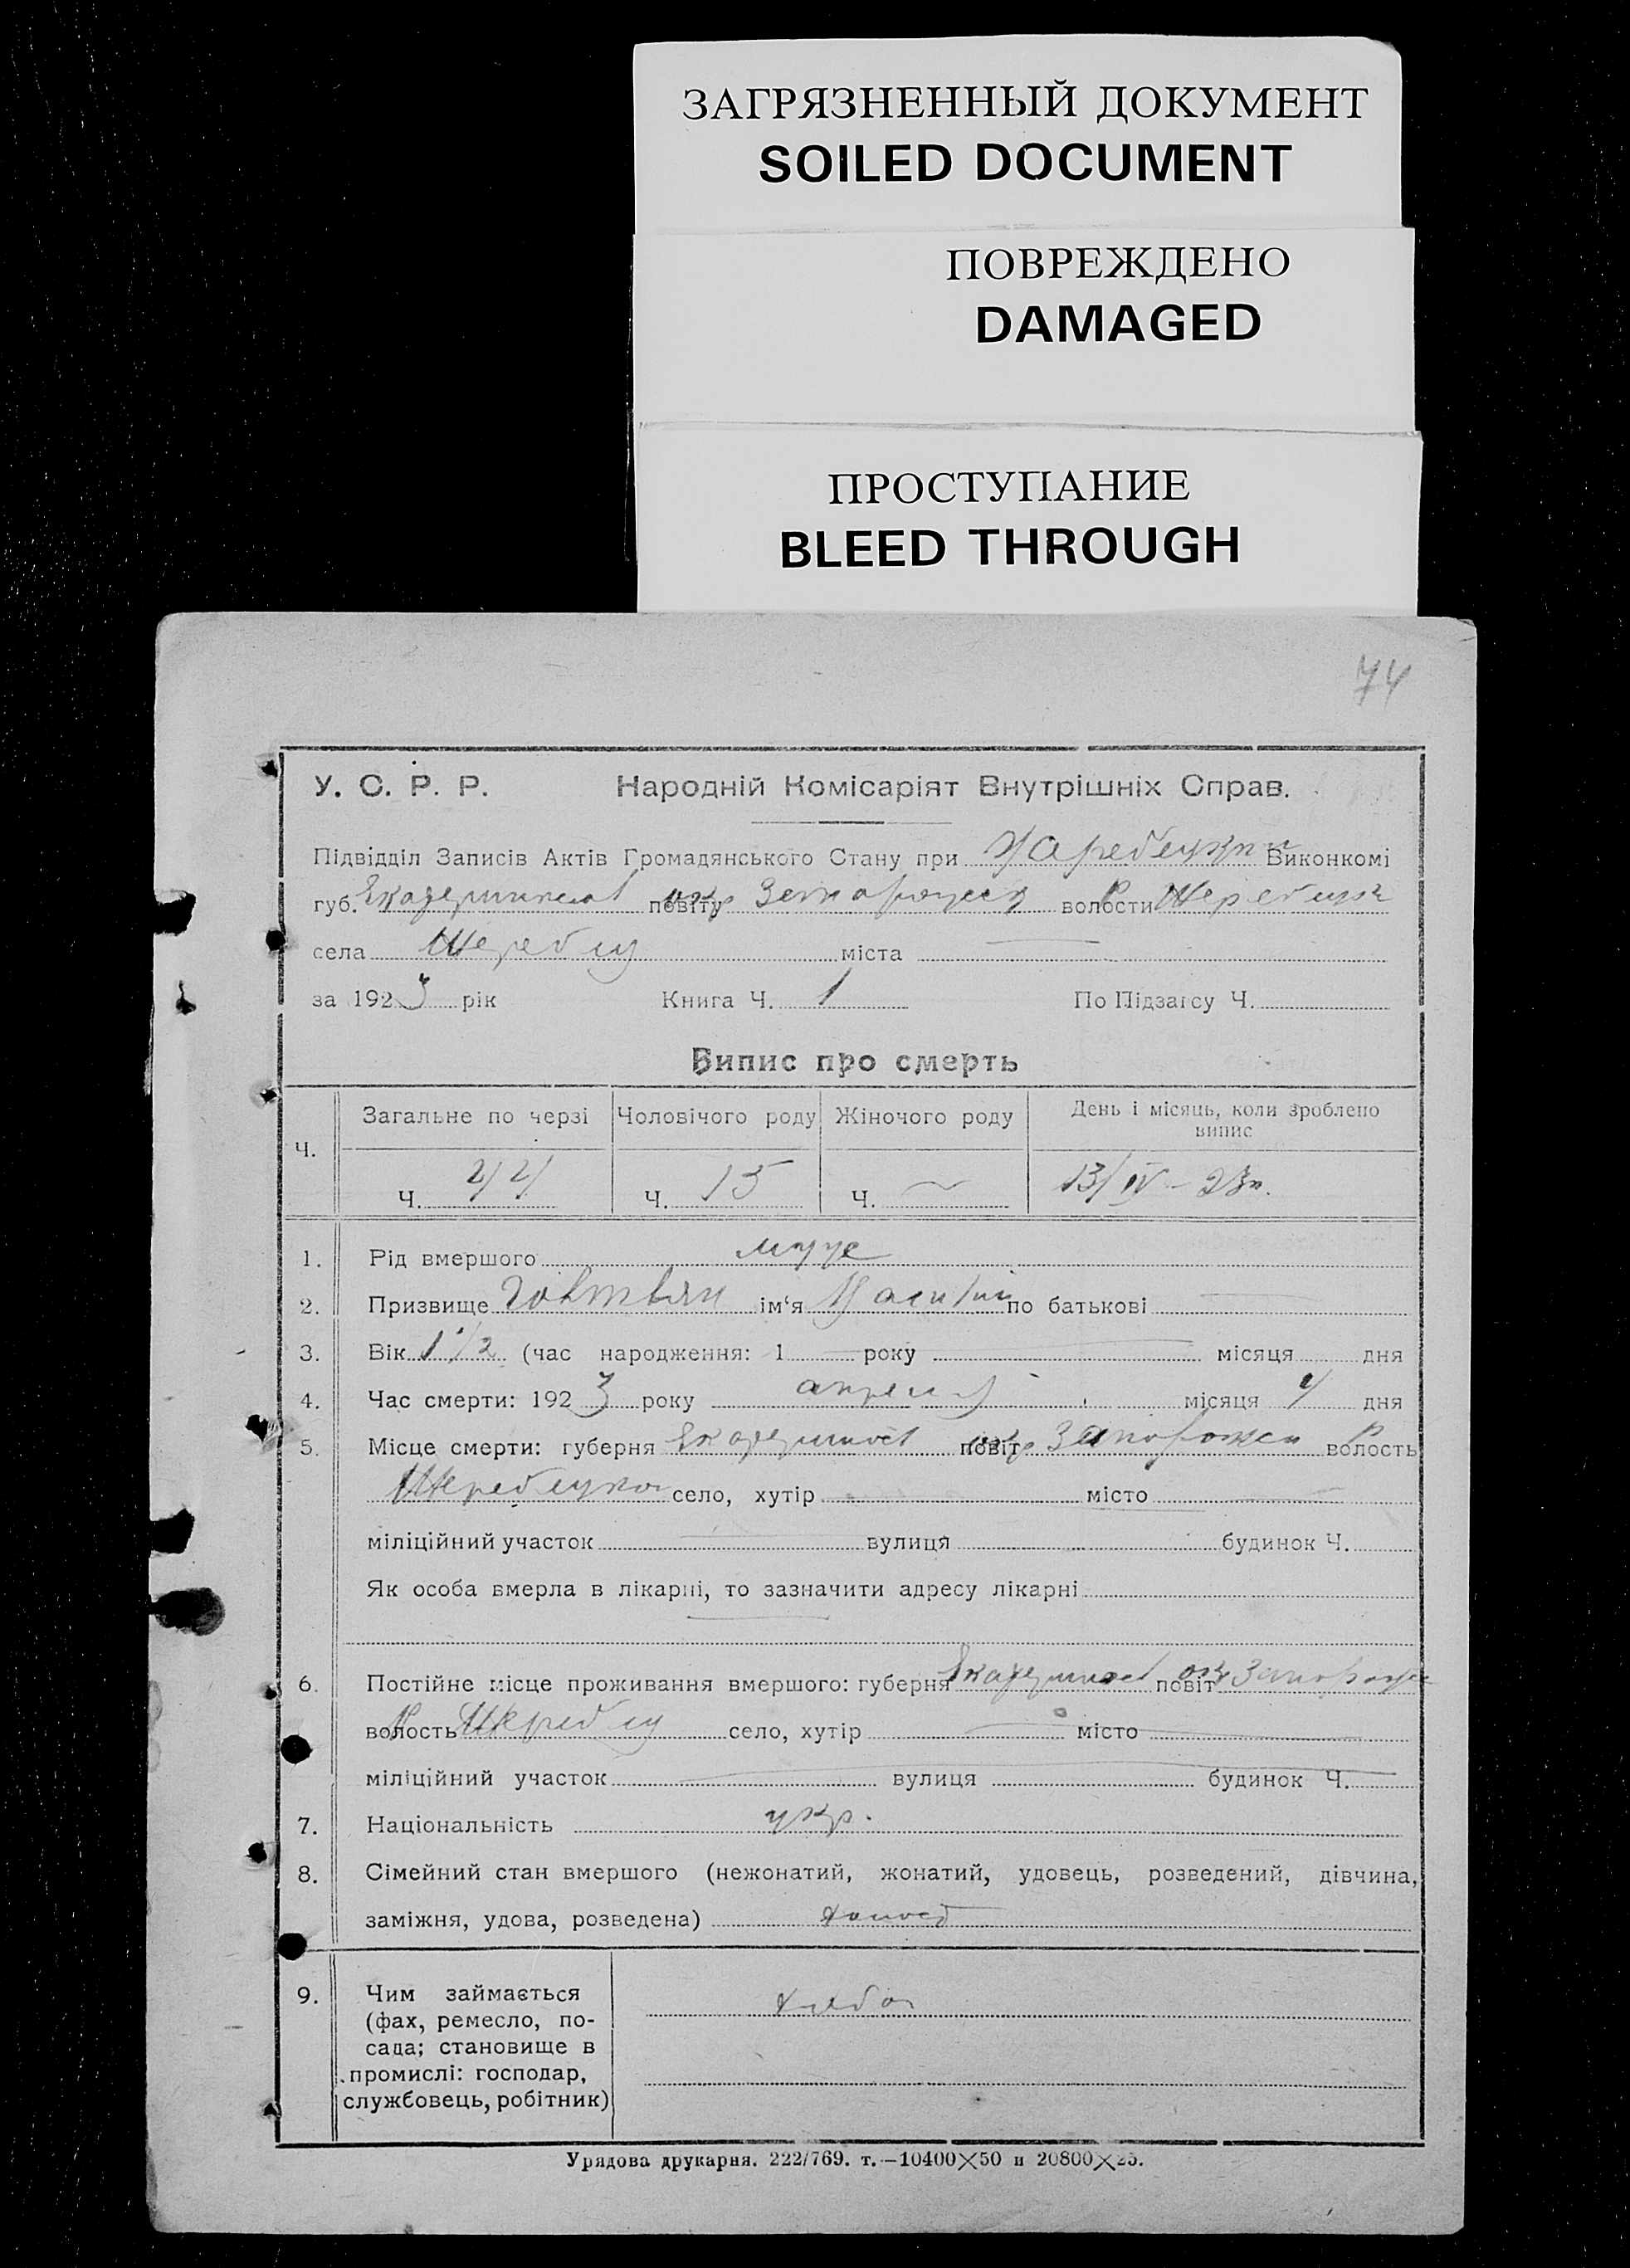 ЗАГРЯЗНЕННЫЙ ДОКУМЕНТ
SOILED DOCUMENT
ПОВРЕЖДЕНО
DAMAGED
ПРОСТУПАНИЕ
BLEED THROUGH
74
У. С. Р. Р. Народній Комісаріят Внутрішніх Справ.
Підвідділ Записів Актів Громадянського Стану при Виконкомі
губ. повіту окр волости Р
села Жеребец міста
за 1923 рік Книга Ч. 1 По Підзагсу Ч.
Випис про смерть
Ч. Загальне по черзі Чоловічого роду Жіночого роду День і місяць, коли зроблено випис
Ч. Ч. 15 Ч. 13/IV - 23
1. Рід вмершого муж
2. Призвище Говтвян ім‘я Василий по батькові
3. Вік 1 1/2 (час народження: 1 року місяця дня
4. Час смерти: 1923 року апреля місяця дня
5. Місце смерти: губерня повіт окр волость Р
село, хутір місто
міліційний участок вулиця будинок Ч.
Як особа вмерла в лікарні, то зазначити адресу лікарні
6. Постійне місце проживання вмершого: губерня повіт окр
волость Р село, хутір місто
міліційний участок вулиця будинок Ч.
7. Національність укр.
8. Сімейний стан вмершого (нежонатий, жонатий, удовець, розведений, дівчина,
заміжня, удова, розведена) холост
9. Чим займається
(фах, ремесло, по-
сада; становище в
промислі: господар,
службовець, робітник)
Урядова друкарня. 222/769. т.—10400×50 и 20800×25.